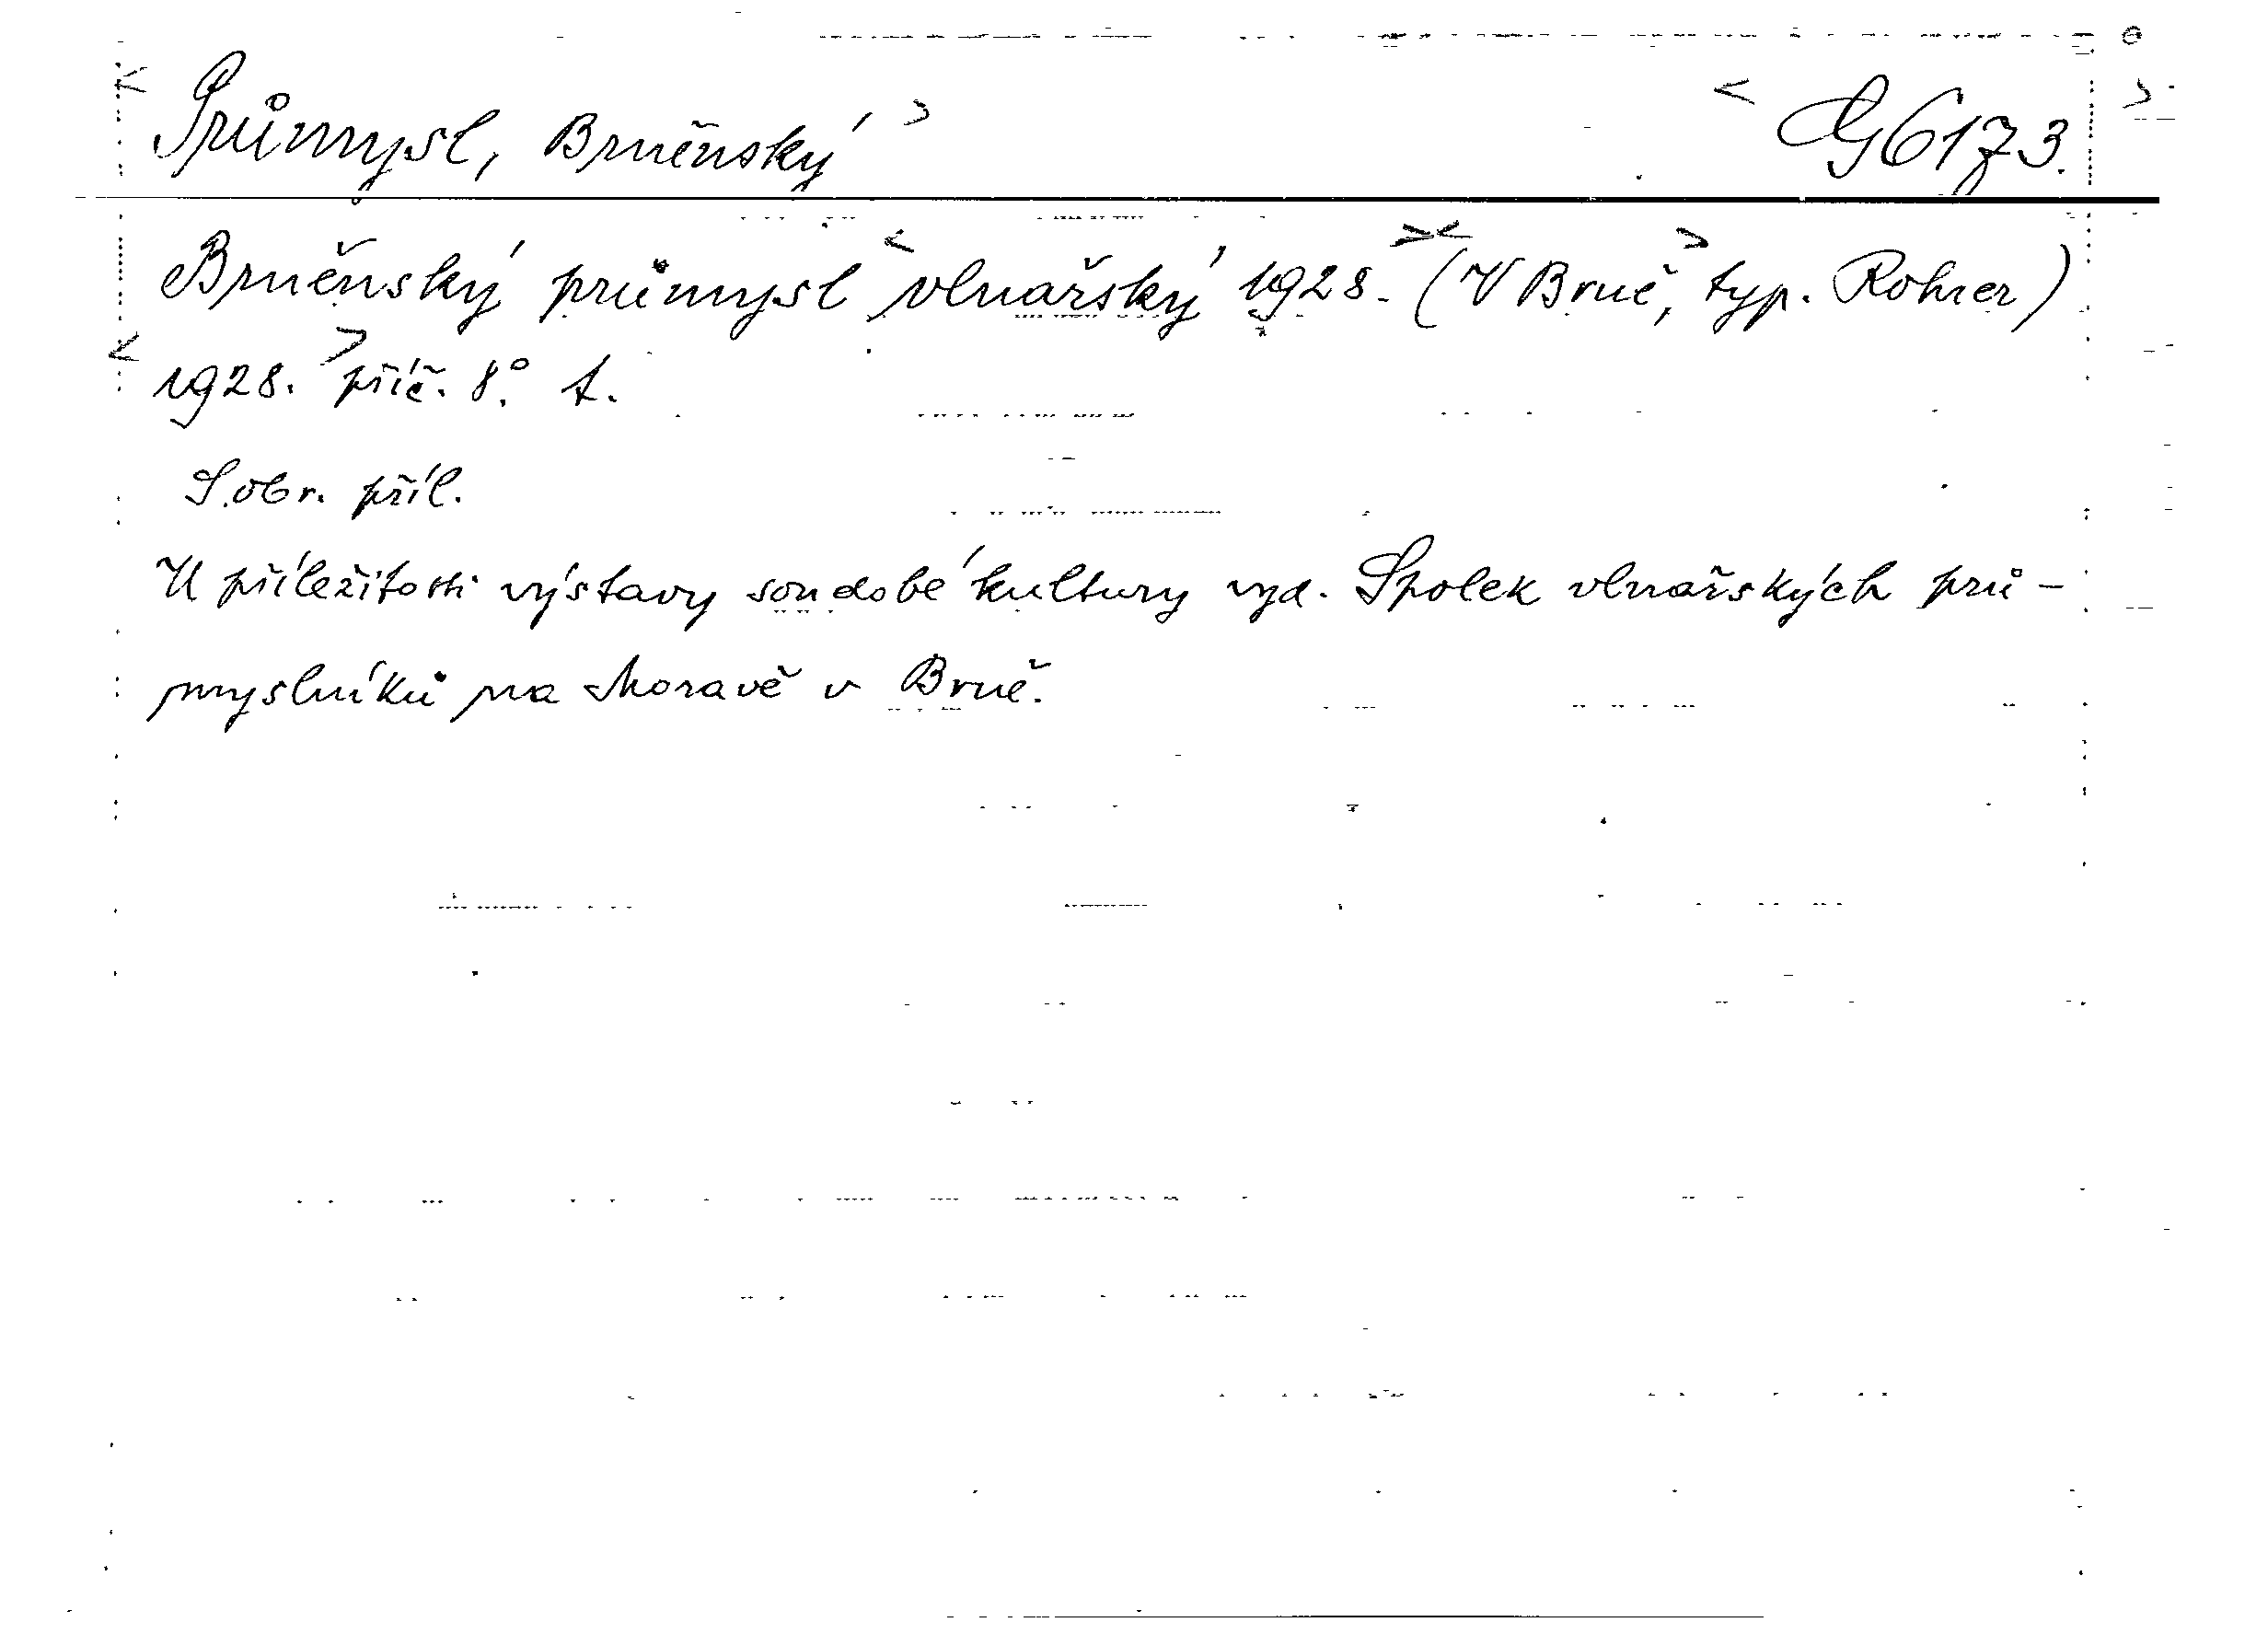 < Průmysl, Brněnský > < G 6173. >
Brněnský průmysl < vlnařský 1928. >< (V Brně, > typ. Rohrer)
< 1928. > příč. 8°. t.
S obr. příl.
U příležitosti výstavy soudobé kultury vyd. Spolek vlnařských prů-
myslníků na Moravě v Brně.